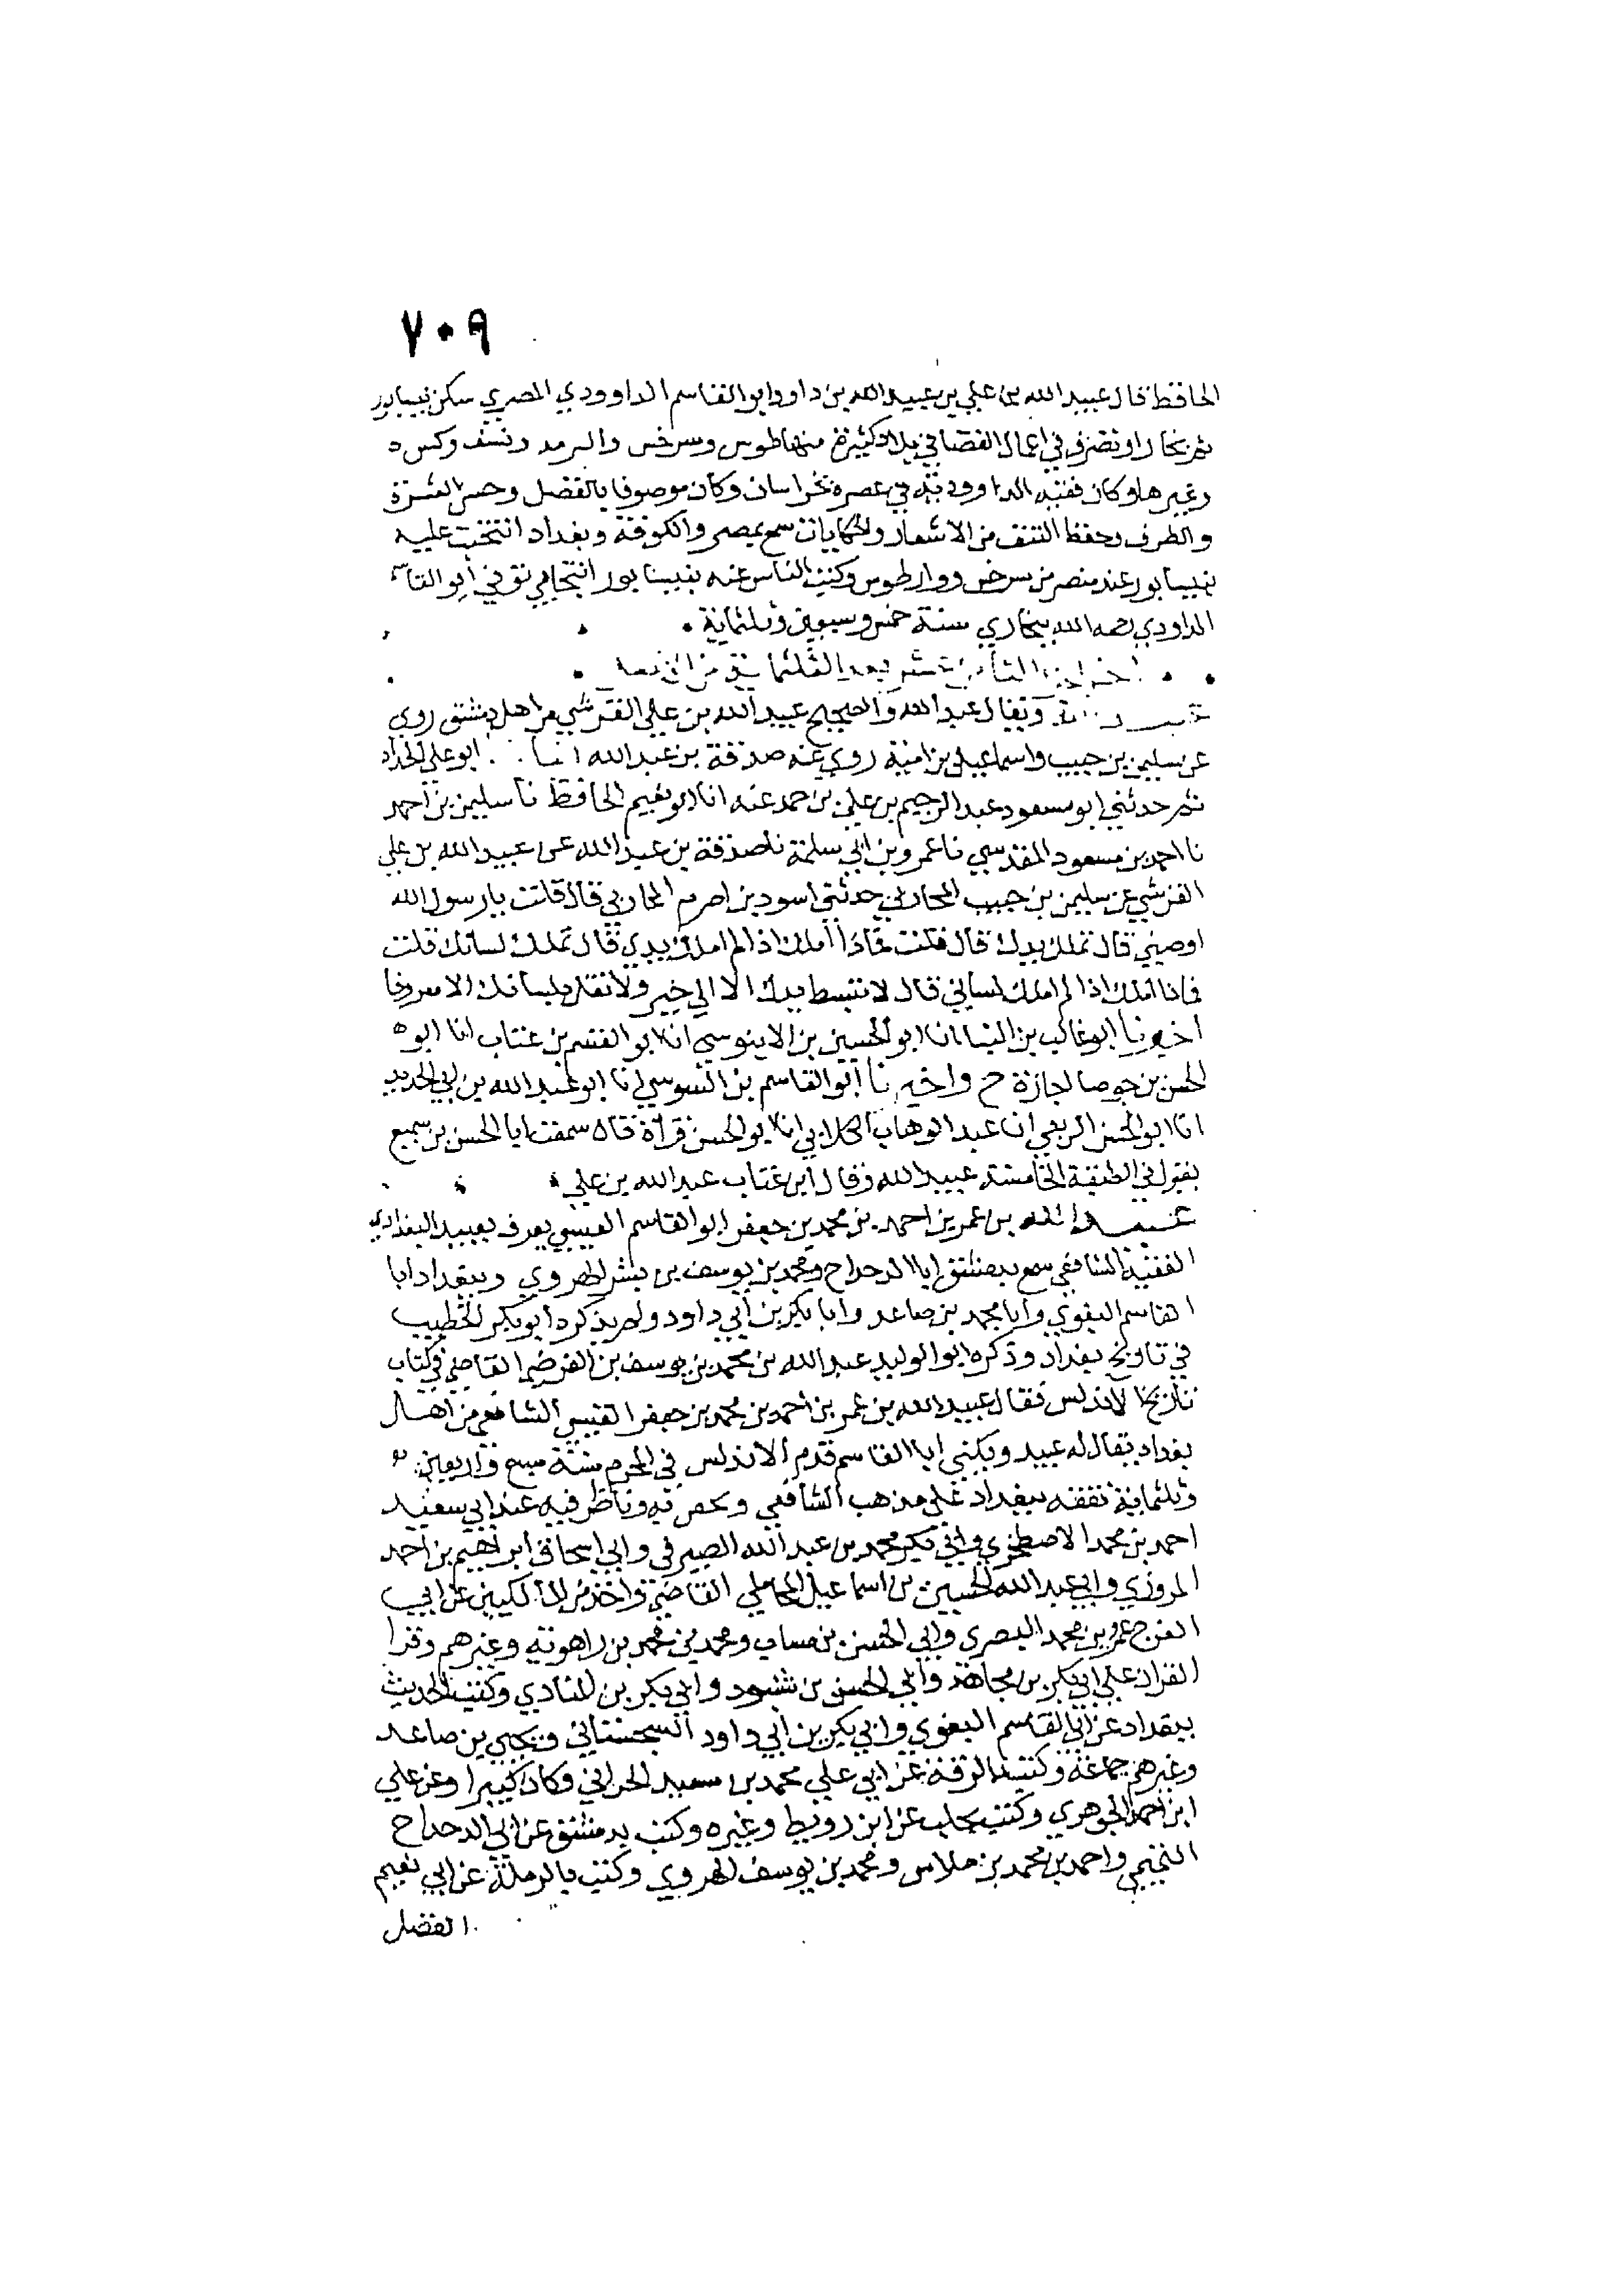 ٧٠٩
الحافظ قال عبيد الله بن علي بن عبيد الله بن داود ابو القاسم الداوودي المصري سكن نيسابور
ثم بخارا وتصرف في اعمال القضا في بلاد كثيرة منها طوس وسرخس والترمد ونسف وكس
وغيرها وكان فقيه الداوودية في عصره بخراسان وكان موصوفا بالفضل وحسن العشرة
والظرف وحفظ النتف من الاشعار والحكايات سمع بمصر والكوفة وبغداد انتخبت عليه
بنيسابور عند منصرفه من سرخس وطوس وكتب الناس عنه بنيسابور انتخابي توفي ابو القاسم
الداودي رحمه الله ببخاري سنة خمس وسبعين وثلثماية
اخر الجزء الثامن عشر بعد الثلثماية من الاصل
ويقال عبد الله والصحيح عبيد الله بن علي القرشي من اهل دمشق روى
عن سليمن بن حبيب واسماعيل بن امية روى عنه صدقة بن عبد الله انبا ابو علي الحداد
ثم حدثني ابو مسعود عبد الرحيم بن علي بن احمد عنه انا ابو نعيم الحافظ نا سليمن بن احمد
نا احمد بن مسعود المقدسي نا عمرو بن ابي سلمة نا صدقة بن عبد الله عن عبيد الله بن علي
القرشي عن سليمن بن حبيب المحاربي حدثني اسود بن اصرم المحاربي قال قلت يا رسول الله
اوصني قال تملك يدك قال قلت فماذا املك اذا لم املك يدي قال تملك لسانك قلت
فماذا املك اذا لم املك لساني قال لا تبسط يدك الا الي خير ولا تقل بلسانك الا معروفا
اخبرنا ابو غالب بن البنا انا ابو الحسين بن الابنوسي انا ابو القسم بن عتاب انا ابو
الحسن بن جوصا اجازة ح واخبرنا ابو القاسم بن السوسي انا ابو عبد الله بن ابي الحديد
انا ابو الحسن الربعي انا عبد الوهاب الكلابي انا ابو الحسن قراة قال سمعت ابا الحسن بن سميع
يقول في الطبقة الخامسة عبيد الله وقال ابن عتاب عبد الله بن علي
عبيد الله بن عمر بن احمد بن محمد بن جعفر ابو القاسم القيسي يعرف بعبيد البغدادي
الفقيه الشافعي سمع بدمشق ابا الدحداح ومحمد بن يوسف بن بشر الهروي وببغداد ابا
القاسم البغوي وابا محمد بن صاعد وابا بكر بن ابي داود ولم يذكره ابو بكر الخطيب
في تاريخ بغداد وذكره ابو الوليد عبد الله بن محمد بن يوسف بن الفرضي القاضي في كتاب
تاريخ الاندلس فقال عبيد الله بن عمر بن احمد بن محمد بن جعفر القيسي الشافعي من اهل
بغداد يقال له عبيد ويكنى ابا القاسم قدم الاندلس في المحرم سنة سبع واربعين
وثلثماية تفقه ببغداد على مذهب الشافعي وناظر فيه عند ابي سعيد
احمد بن محمد الاصطخري وابي بكر محمد بن عبد الله الصيرفي وابي اسحاق ابراهيم بن احمد
المروزي وابي عبد الله الحسين بن اسماعيل المحاملي القاضي واخذ من المالكيين عن ابي
الفرج عمرو بن محمد البصري وابي الحسن بن منساب ومحمد بن محمد بن راهويه وغيرهم وقرا
القران علي ابي بكر بن مجاهد وابي الحسن بن شنبود وابي بكر بن المنادي وكتب الحديث
ببغداد عن ابي القاسم البغوي وابي بكر بن ابي داود السجستاني ويحيى بن صاعد
وغيرهم جماعة وكتب بالرقة عن ابي علي محمد بن سعيد الحراني وكان كبيرا وعن علي
ابن احمد الجوهري وكتب بحلب عن ابن رويط وغيره وكتب بدمشق عن ابي الدحداح
التميمي واحمد بن محمد بن ملاس ومحمد بن يوسف الهروي وكتب بالرملة عن ابي نعيم
الفضل